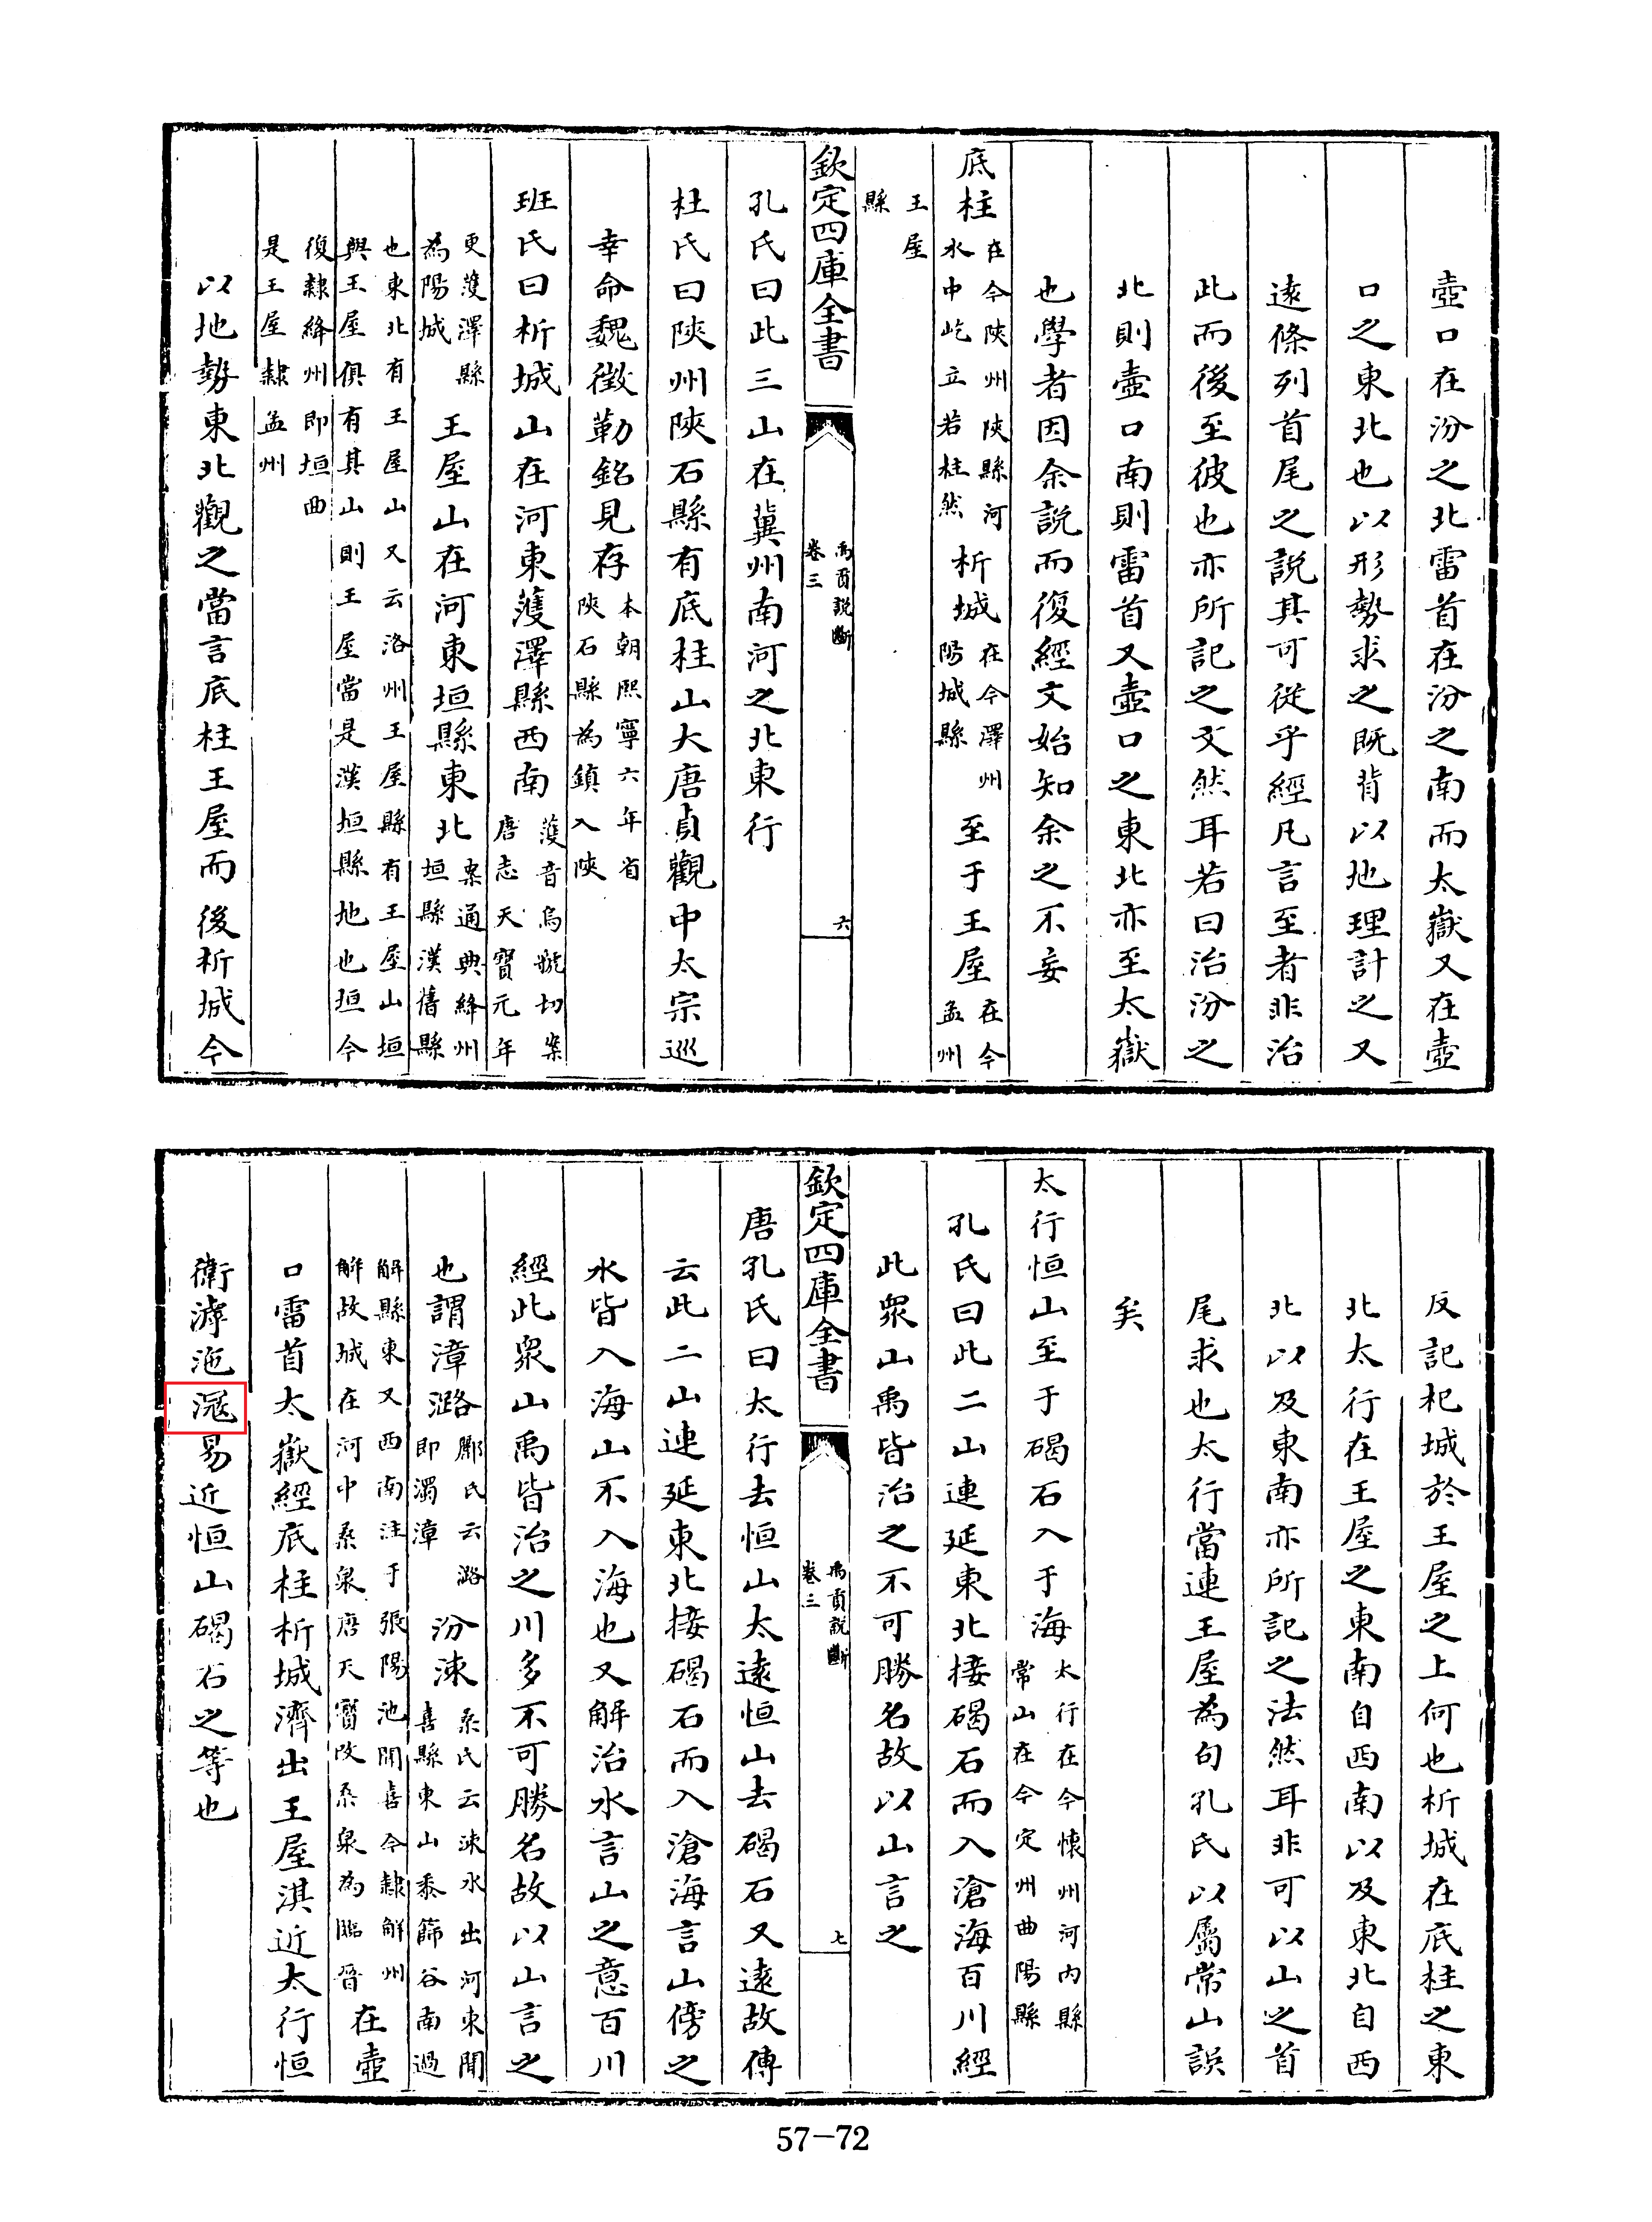 壺口在汾之北雷首在汾之南而太嶽又在壺
口之東北也以形勢求之既背以地理計之又
遠條列首尾之說其可從乎經凡言至者非治
此而後至彼也亦所記之文然耳若曰治汾之
北則壺口南則雷首又壺口之東北亦至太嶽
也學者因余說而復經文始知余之不妄
底柱在今陜州陜縣河水中屹立若柱然析城在今澤州陽城縣至于王屋在今孟州
王屋縣
欽定四庫全書
禹貢說斷
卷三
六
孔氏曰此三山在冀州南河之北東行
杜氏曰陜州陜石縣有底柱山大唐貞觀中太宗巡
幸命魏徵勒銘見存本朝熙寧六年省陜石縣為鎮入陜
班氏曰析城山在河東濩澤縣西南濩音烏虢切案唐志天寶元年
更濩澤縣為陽城王屋山在河東垣縣東北案通典絳州垣縣漢舊縣
也東北有王屋山又云洛州王屋縣有王屋山垣與王屋俱有其山則王屋當是漢垣縣地也垣今
復隸絳州即垣曲是王屋隸孟州
以地勢東北觀之當言底柱王屋而後析城今
反記析城於王屋之上何也析城在底柱之東
北太行在王屋之東南自西南以及東北自西
北以及東南亦所記之法然耳非可以山之首
尾求也太行當連王屋為句孔氏以屬常山誤
矣
太行恒山至于碣石入于海太行在今懷州河內縣常山在今定州曲陽縣
孔氏曰此二山連延東北接碣石而入滄海百川經
此眾山禹皆治之不可勝名故以山言之
欽定四庫全書
禹貢說斷
卷三
七
唐孔氏曰太行去恒山太遠恒山去碣石又遠故傳
云此二山連延東北接碣石而入滄海言山傍之
水皆入海山不入海也又解治水言山之意百川
經此眾山禹皆治之川多不可勝名故以山言之
也謂漳潞酈氏云潞即濁漳汾涑桑氏云涑水出河東聞喜縣東山黍篩谷南過
解縣東又西南注于張陽池聞喜今隸解州解故城在河中桑泉唐天寶改桑泉為臨晉在壺
口雷首太嶽經底柱析城濟出王屋淇近太行恒
衛滹沱滱易近恒山碣石之等也
57-72